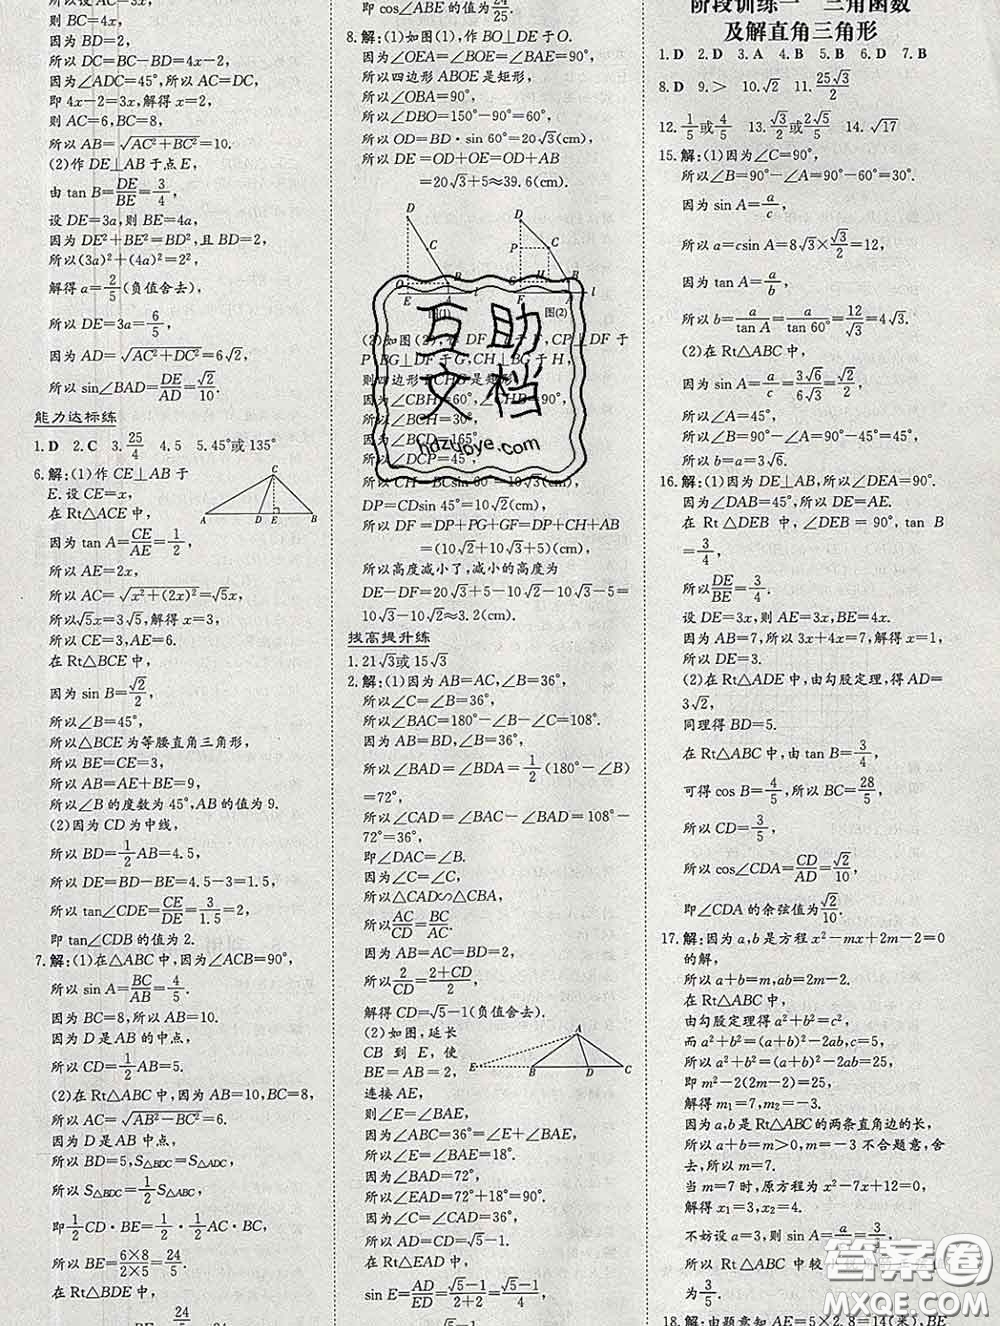 所以设 AC=3x,
则 BC=4x,
所以 DC=BC−BD=4x−2,
因为∠ADC=45°,所以 AC=DC,
即 4x−2=3x,解得 x=2,
则 AC=6,BC=8,
所以 AB=√(AC²+BC²)=10.
(2)作 DE⊥AB 于点 E,
由 tan B=DE/BE=3/4,
设 DE=3a,则 BE=4a,
因为 DE²+BE²=BD²,且 BD=2,
所以(3a)²+(4a)²=2²,
解得 a=2/5(负值舍去),
所以 DE=3a=6/5,
因为 AD=√(AC²+DC²)=6√2,
所以 sin∠BAD=DE/AD=√2/10.
能力达标练
1. D 2. C 3. 25/4 4. 5 5. 45°或 135°
6. 解:(1)作 CE⊥AB 于
E. 设 CE=x,
在 Rt△ACE 中,
因为 tan A=CE/AE=1/2,
所以 AE=2x,
所以 AC=√(x²+(2x)²)=√5x,
所以√5x=3√5,解得 x=3,
所以 CE=3,AE=6.
在 Rt△BCE 中,
因为 sin B=√2/2,
所以∠B=45°,
所以△BCE 为等腰直角三角形,
所以 BE=CE=3,
所以 AB=AE+BE=9.
所以∠B 的度数为 45°,AB 的值为 9.
(2)因为 CD 为中线,
所以 BD=1/2AB=4.5,
所以 DE=BD−BE=4.5−3=1.5,
所以 tan∠CDE=CE/DE=3/1.5=2,
即 tan∠CDB 的值为 2.
7. 解:(1)在△ABC 中,因为∠ACB=90°,
所以 sin A=BC/AB=4/5.
因为 BC=8,所以 AB=10.
因为 D 是 AB 的中点,
所以 CD=1/2AB=5.
(2)在 Rt△ABC 中,因为 AB=10,BC=8,
所以 AC=√(AB²−BC²)=6.
因为 D 是 AB 中点,
所以 BD=5,S△BDC=S△ADC,
所以 S△BDC=1/2S△ABC,
即1/2CD·BE=1/2·1/2AC·BC,
所以 BE=6×8/2×5=24/5.
在 Rt△BDE 中,
即 cos∠ABE 的值为24/25.
8. 解:(1)如图(1),作 BO⊥DE 于 O.
因为∠OEA=∠BOE=∠BAE=90°,
所以四边形 ABOE 是矩形,
所以∠OBA=90°,
所以∠DBO=150°−90°=60°,
所以 OD=BD·sin 60°=20√3(cm),
所以 DE=OD+OE=OD+AB
=20√3+5≈39.6(cm).
D
C
O B
E A l
图(1)
D
P C
G H B
F A l
图(2)
(2)如图(2),作 DF⊥l 于 F,CP⊥DF 于
P,BG⊥DF 于 G,CH⊥BG 于 H,
则四边形 PCHG 是矩形,
因为∠CBH=60°,∠CHB=90°,
所以∠BCH=30°.
因为∠BCD=165°,
所以∠DCP=45°.
所以 CH=BCsin 60°=10√3(cm),
DP=CDsin 45°=10√2(cm),
所以 DF=DP+PG+GF=DP+CH+AB
=(10√2+10√3+5)(cm),
所以高度减小了,减小的高度为
DE−DF=20√3+5−10√2−10√3−5=
10√3−10√2≈3.2(cm).
拔高提升练
1. 21√3或 15√3
2. 解:(1)因为 AB=AC,∠B=36°,
所以∠C=∠B=36°,
所以∠BAC=180°−∠B−∠C=108°.
因为 AB=BD,∠B=36°,
所以∠BAD=∠BDA=1/2(180°−∠B)
=72°,
所以∠CAD=∠BAC−∠BAD=108°−
72°=36°,
即∠DAC=∠B.
因为∠C=∠C,
所以△CAD∽△CBA,
所以AC/CD=BC/AC.
因为 AB=AC=BD=2,
所以2/CD=2+CD/2,
解得 CD=√5−1(负值舍去).
(2)如图,延长
CB 到 E,使
BE=AB=2,
连接 AE,
则∠E=∠BAE,
因为∠ABC=36°=∠E+∠BAE,
所以∠E=∠BAE=18°.
因为∠BAD=72°,
所以∠EAD=72°+18°=90°.
因为∠C=∠CAD=36°,
所以 AD=CD=√5−1.
在 Rt△EAD 中,
sin E=AD/ED=√5−1/2+2=√5−1/4.
阶段训练一 三角函数
及解直角三角形
1. D 2. D 3. A 4. B 5. B 6. D 7. B
8. D 9. > 10. √2 11. 25√3/2
12. 1/5或4/5 13. √3/2或2√5/5 14. √17
15. 解:(1)因为∠C=90°,
所以∠B=90°−∠A=90°−60°=30°.
因为 sin A=a/c,
所以 a=csin A=8√3×√3/2=12,
因为 tan A=a/b,
所以 b=a/tan A=a/tan 60°=12/√3=4√3.
(2)在 Rt△ABC 中,
因为 sin A=a/c=3√6/6√3=√2/2,
所以∠A=45°,
所以∠B=90°−∠A=90°−45°=45°,
所以 b=a=3√6.
16. 解:(1)因为 DE⊥AB,所以∠DEA=90°.
因为∠DAB=45°,所以 DE=AE.
在 Rt△DEB 中,∠DEB=90°,tan B
=3/4,
所以DE/BE=3/4.
设 DE=3x,则 AE=3x,BE=4x.
因为 AB=7,所以 3x+4x=7,解得 x=1,
所以 DE=3.
(2)在 Rt△ADE 中,由勾股定理,得 AD=
3√2,
同理得 BD=5.
在 Rt△ABC 中,由 tan B=3/4,
可得 cos B=4/5,所以 BC=28/5,
所以 CD=3/5,
所以 cos∠CDA=CD/AD=√2/10,
即∠CDA 的余弦值为√2/10.
17. 解:因为 a,b 是方程 x²−mx+2m−2=0
的解,
所以 a+b=m,ab=2m−2,
在 Rt△ABC 中,
由勾股定理得 a²+b²=c²,
而 a²+b²=(a+b)²−2ab,c=5,
所以 a²+b²=(a+b)²−2ab=25,
即 m²−2(2m−2)=25,
解得 m₁=7,m₂=−3.
因为 a,b 是 Rt△ABC 的两条直角边的长,
所以 a+b=m>0,m=−3 不合题意,舍
去,所以 m=7.
当 m=7 时,原方程为 x²−7x+12=0,
解得 x₁=3,x₂=4.
不妨设 a=3,则 sin A=a/c=3/5,
所以 Rt△ABC 中较
为3/5.
18. 解:由题意知 AE=5×2.8=14(米),BE
互助
文档
hdzuoye.com
答案圈
MXQE.COM